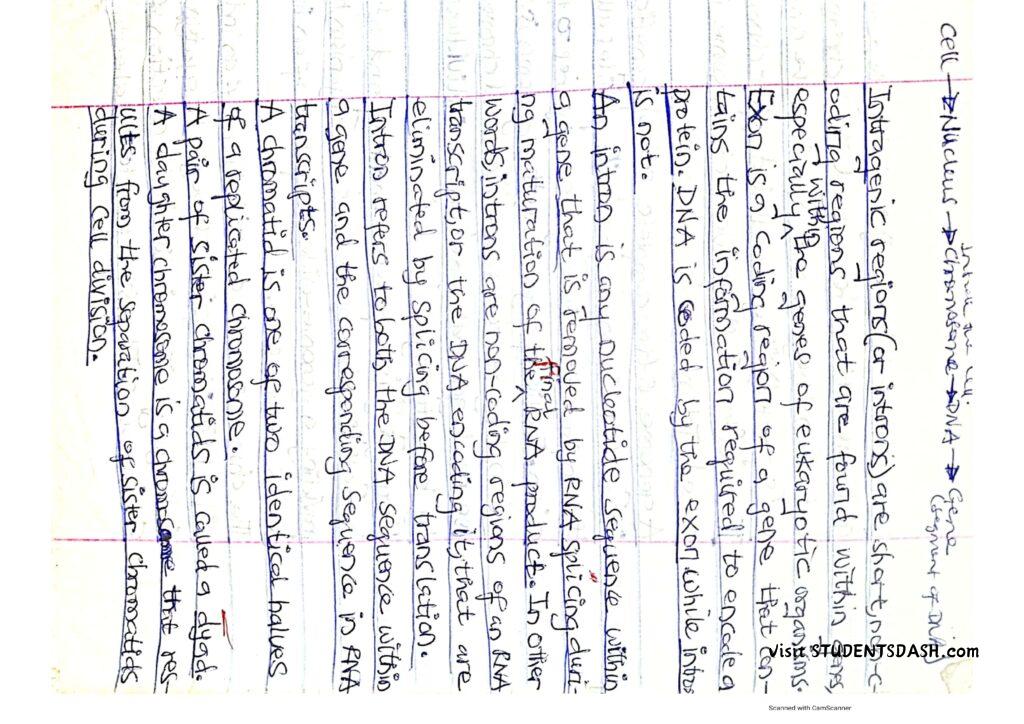 Cell → Nucleus → Chromosome → DNA → Gene
(segment of DNA)
Intragenic regions (or introns) are short, non-c-
oding regions that are found within genes,
especially within the genes of eukaryotic organisms.
Exon is a coding region of a gene that con-
tains the information required to encode a
protein. DNA is coded by the exon while intron
is not.
An intron is any nucleotide sequence within
a gene that is removed by RNA splicing duri-
ng maturation of the final RNA product. In other
words, introns are non-coding regions of an RNA
transcript, or the DNA encoding it, that are
eliminated by splicing before translation.
Intron refers to both the DNA sequence within
a gene and the corresponding sequence in RNA
transcripts.
A chromatid is one of two identical halves
of a replicated chromosome.
A pair of sister chromatids is called a dyad.
A daughter chromosome is a chromosome that res-
ults from the separation of sister chromatids
during cell division.
Visit STUDENTSDASH.com
Scanned with CamScanner